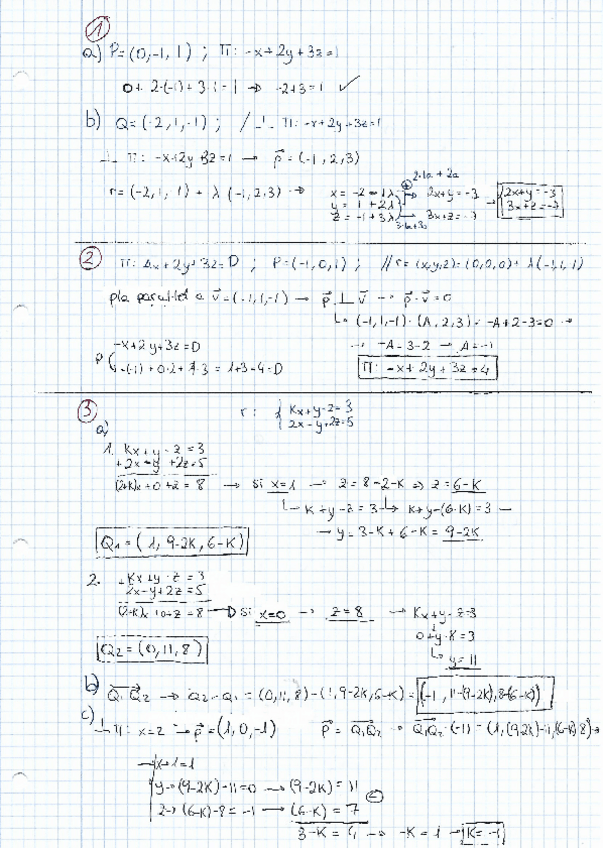 1
a) P=(0,-1,1) ; Π: -x+2y+3z=1
0+ 2·(-1)+3·1=1 → -2+3=1 ✓
b) Q=(-2,1,-1) ; / ⊥ Π: -x+2y+3z=1
⊥ Π: -x+2y+3z=1 → p⃗=(-1,2,3)
r=(-2,1,-1)+λ(-1,2,3) → x=-2-1λ
y=1+2λ
z=-1+3λ
2·1a+2a
2x+y=-3
3x+z=-7
2x+y=-3
3x+z=-7
2
Π: Ax+2y+3z=D ; P=(-1,0,1) ; // r=(x,y,z)=(0,0,0)+λ(-1,1,1)
pla paral·lel a v⃗=(-1,1,-1) → p⃗ ⊥ v⃗ → p⃗·v⃗=0
(-1,1,-1)·(A,2,3)=-A+2-3=0 →
-x+2y+3z=D
→ -A=3-2 → A=-1
P -(-1)+0·2+1·3=1+3=4=D
Π: -x+2y+3z=4
3
r: { Kx+y-z=3
2x-y+2z=5
a)
1. Kx+y-z=3
+2x-y+2z=5
(2+K)x+0+z=8 → Si x=1 → z=8-2-K ⇒ z=6-K
K+y-z=3 → K+y-(6-K)=3 →
→ y=3-K+6-K=9-2K
Q1=(1,9-2K,6-K)
2. +Kx+y-z=3
2x-y+2z=5
(2+K)x+0+z=8 → Si x=0 → z=8 → Kx+y-z=3
0+y-8=3
y=11
Q2=(0,11,8)
b) Q1Q2 → Q2-Q1=(0,11,8)-(1,9-2K,6-K)=(-1,11-(9-2K),8-(6-K))
c) ⊥ Π: x=z → p⃗=(1,0,-1) p⃗=Q1Q2 → Q1Q2·(-1)=(1,(9-2K)-11,(6-K)-8) →
x→1=1
y→(9-2K)-11=0 → (9-2K)=11
z→(6-K)-8=-1 → (6-K)=7
3-K=4 → -K=1 → K=-1